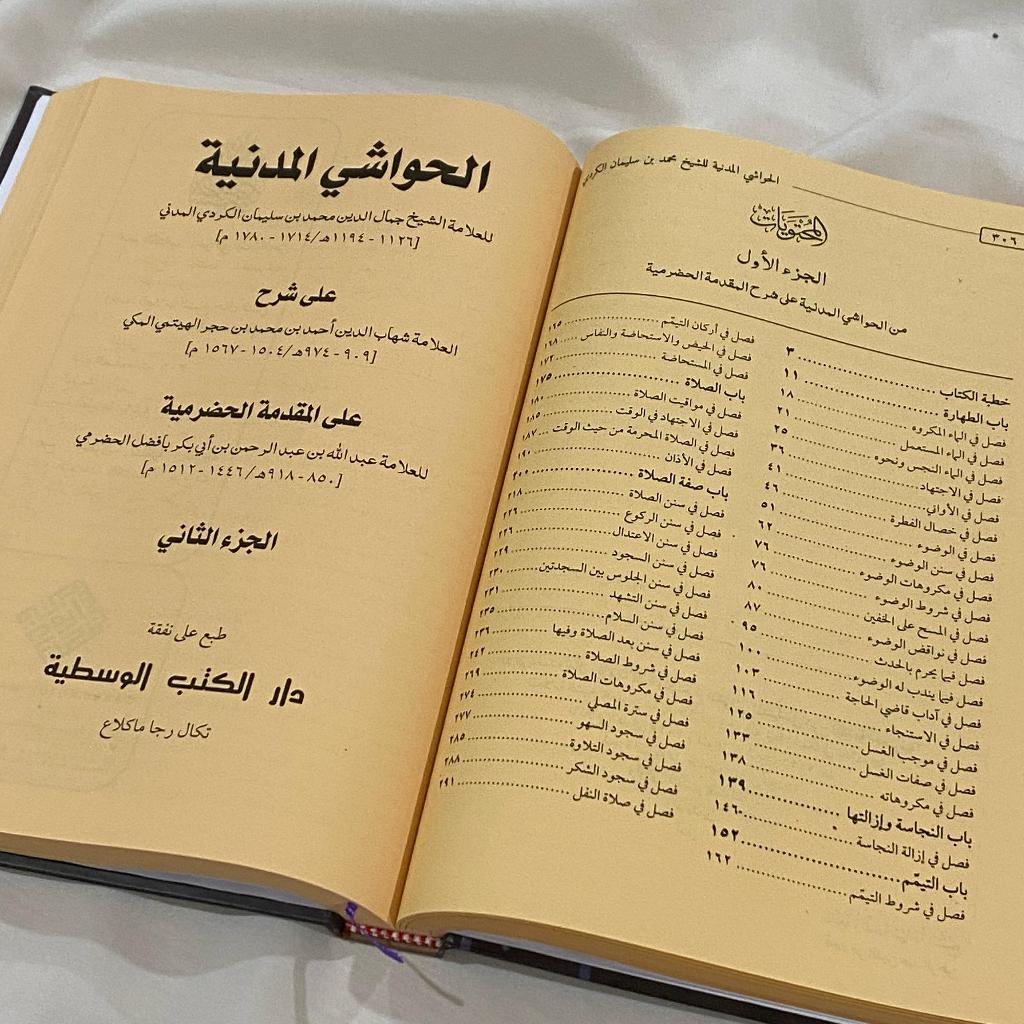 الحواشي المدنية للشيخ محمد بن سليمان الكردي
٣٠٦
المحتويات
الجزء الأول
من الحواشي المدنية على شرح المقدمة الحضرمية
خطبة الكتاب ٣
باب الطهارة ١١
فصل في الماء المكروه ١٨
فصل في الماء المستعمل ٢١
فصل في الماء النجس ونحوه ٢٥
فصل في الاجتهاد ٣٦
فصل في الأواني ٤١
فصل في خصال الفطرة ٤٦
فصل في الوضوء ٥١
فصل في سنن الوضوء ٦٢
فصل في مكروهات الوضوء ٧٦
فصل في شروط الوضوء ٧٦
فصل في المسح على الخفين ٨٠
فصل في نواقض الوضوء ٨٧
فصل فيما يحرم بالحدث ٩٥
فصل فيما يندب له الوضوء ١٠٠
فصل في آداب قاضي الحاجة ١٠٣
فصل في الاستنجاء ١١٦
فصل في موجب الغسل ١٢٥
فصل في صفات الغسل ١٣٣
فصل في مكروهاته ١٣٨
باب النجاسة وإزالتها ١٣٩
فصل في إزالة النجاسة ١٤٦
باب التيمّم ١٥٢
فصل في شروط التيمّم ١٦٢
فصل في أركان التيمّم ١٦٥
فصل في الحيض والاستحاضة والنفاس ١٦٨
فصل في المستحاضة ١٧٢
باب الصلاة ١٧٥
فصل في مواقيت الصلاة ١٨٠
فصل في الاجتهاد في الوقت ١٨٥
فصل في الصلاة المحرمة من حيث الوقت ١٨٧
فصل في الأذان ١٩٠
باب صفة الصلاة ٢٠٠
فصل في سنن الصلاة ٢١٨
فصل في سنن الركوع ٢٢٦
فصل في سنن الاعتدال ٢٢٦
فصل في سنن السجود ٢٢٩
فصل في سنن الجلوس بين السجدتين ٢٣٠
فصل في سنن التشهد ٢٣١
فصل في سنن السلام ٢٣٥
فصل في سنن بعد الصلاة وفيها ٢٣٦
فصل في شروط الصلاة ٢٤٢
فصل في مكروهات الصلاة ٢٦٩
فصل في سترة المصلي ٢٧٤
فصل في سجود السهو ٢٧٧
فصل في سجود التلاوة ٢٨٥
فصل في سجود الشكر ٢٨٨
فصل في صلاة النفل ٢٩١
الحواشي المدنية
للعلامة الشيخ جمال الدين محمد بن سليمان الكردي المدني
[١١٢٦ - ١١٩٤هـ/١٧١٤ - ١٧٨٠ م]
على شرح
العلامة شهاب الدين أحمد بن محمد بن حجر الهيتمي المكي
[٩٠٩ - ٩٧٤هـ/١٥٠٤ - ١٥٦٧ م]
على المقدمة الحضرمية
للعلامة عبد الله بن عبد الرحمن بن أبي بكر بافضل الحضرمي
[٨٥٠ - ٩١٨هـ/١٤٤٦ - ١٥١٢ م]
الجزء الثاني
طبع على نفقة
دار الكتب الوسطية
تكال رجا ماكلاع